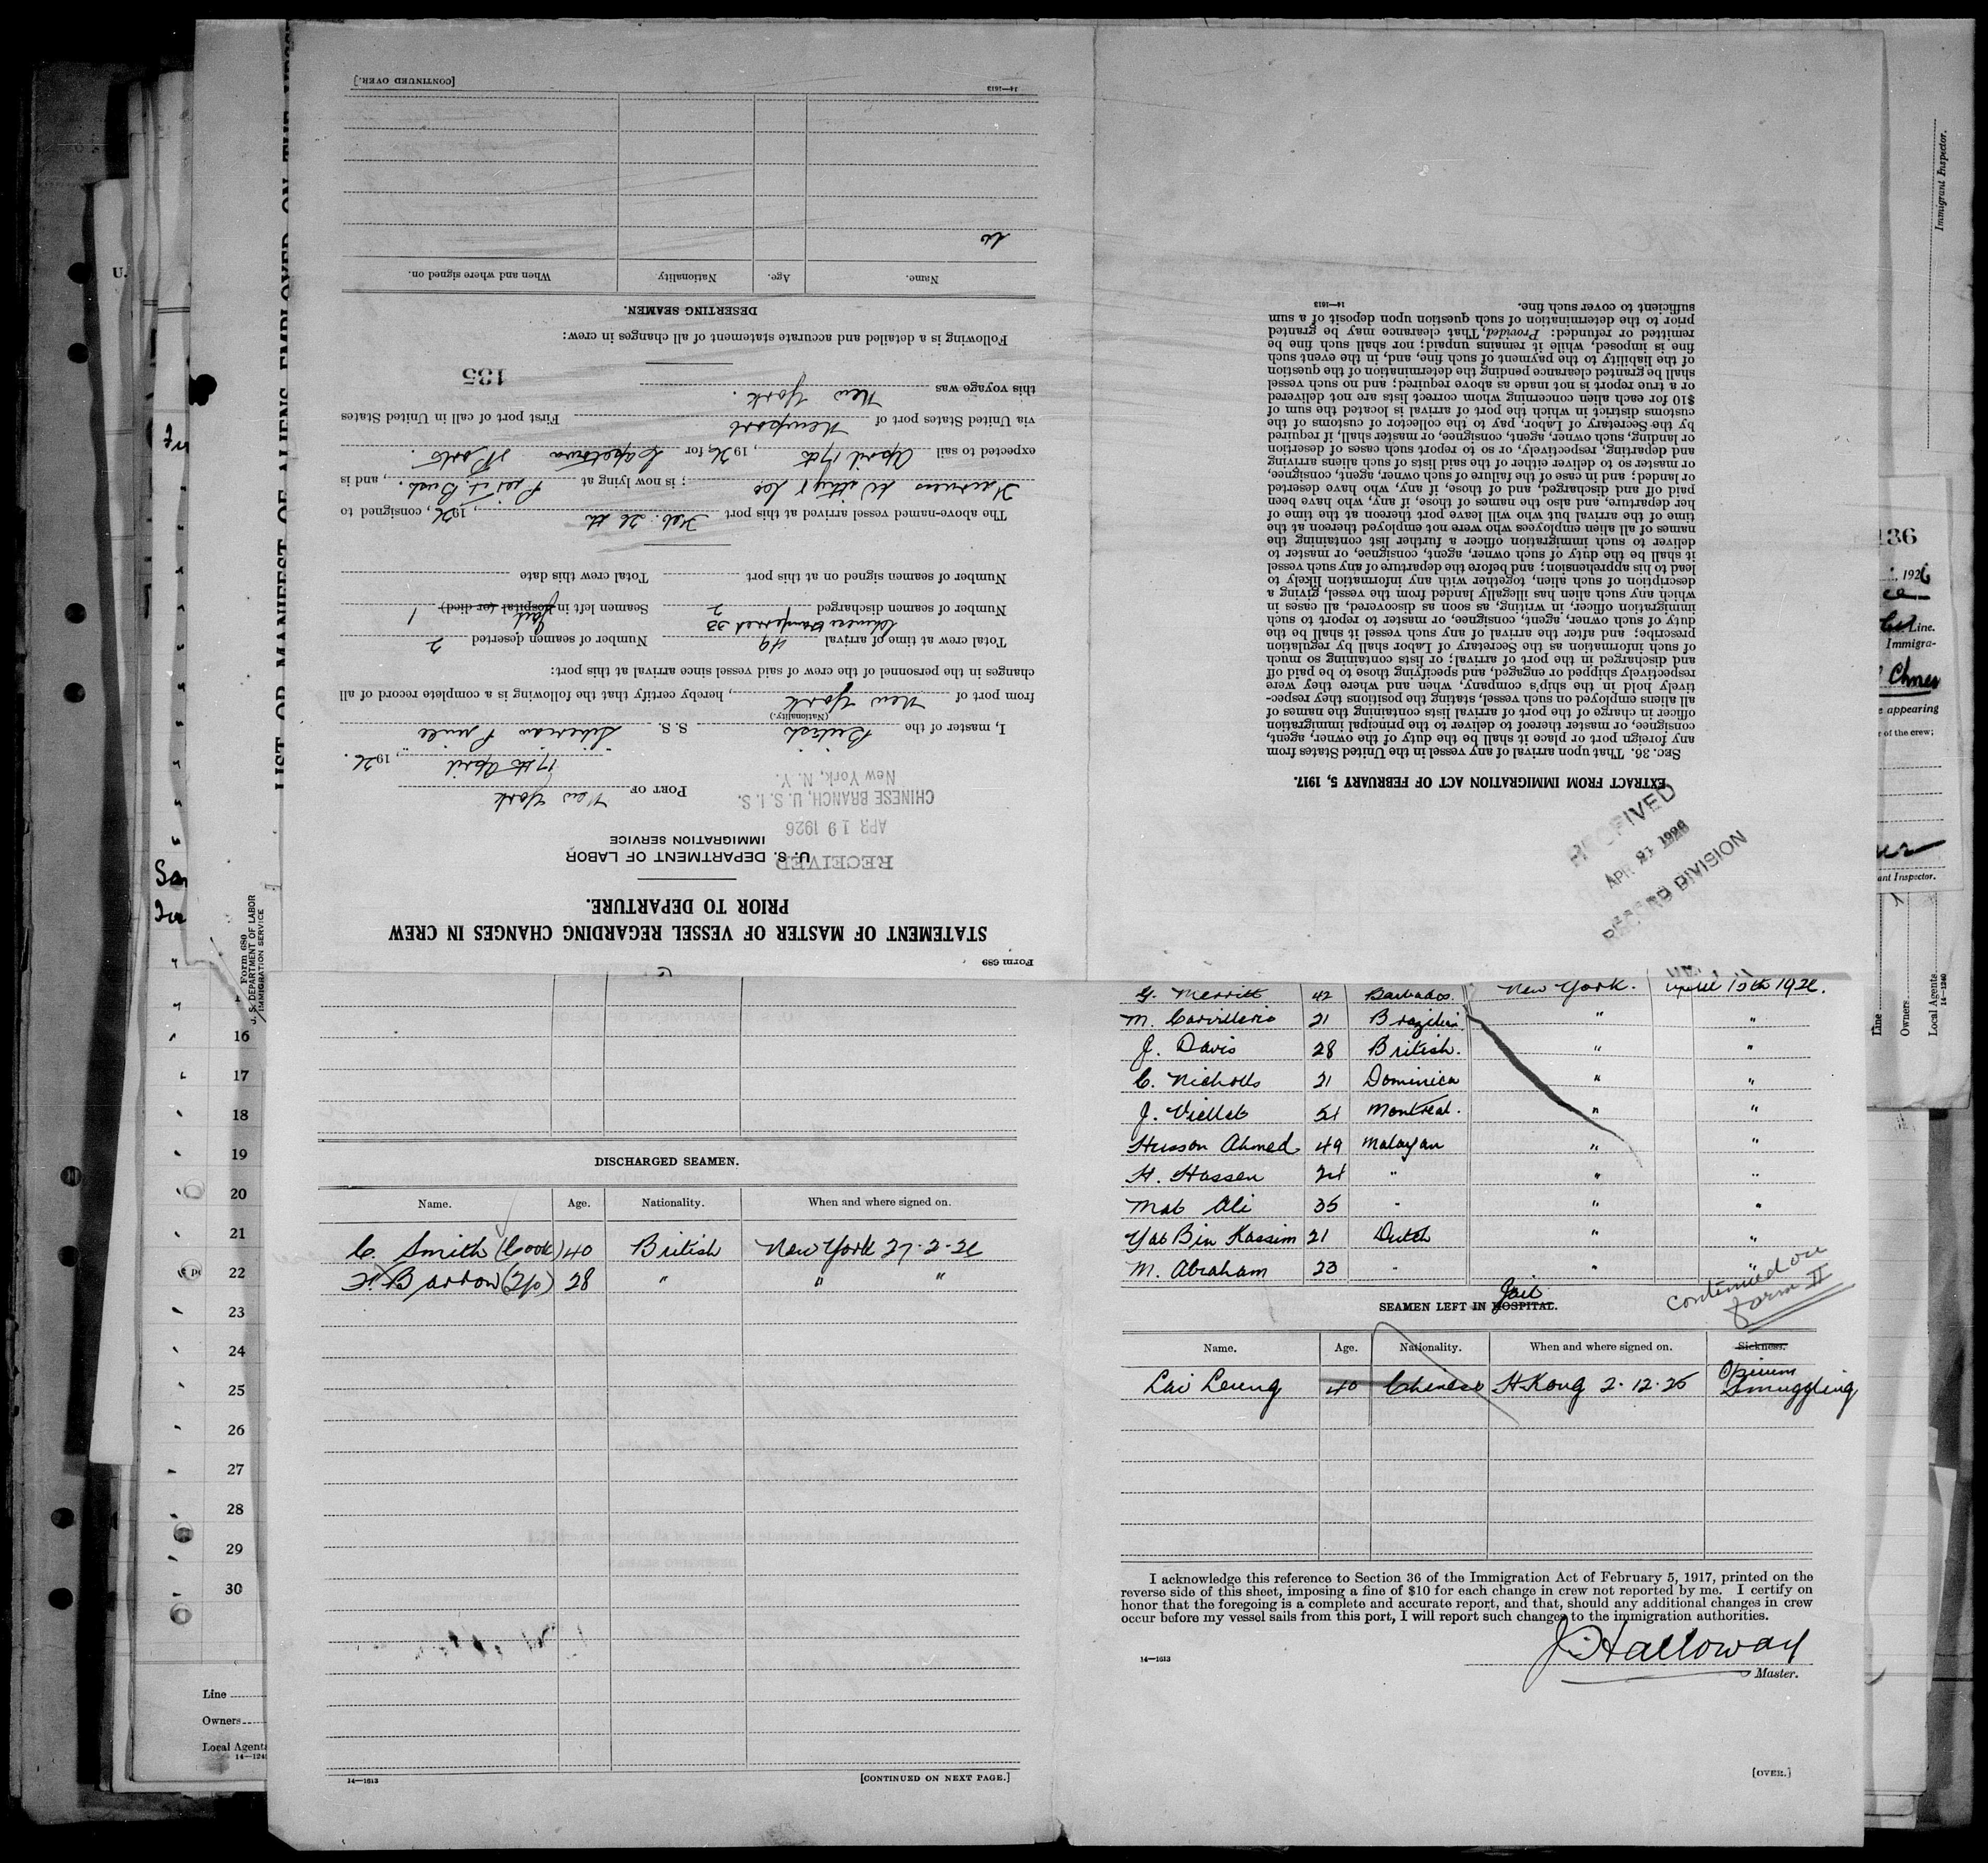 Form 689
STATEMENT OF MASTER OF VESSEL REGARDING CHANGES IN CREW
PRIOR TO DEPARTURE.
U. S. DEPARTMENT OF LABOR
IMMIGRATION SERVICE
RECEIVED
APR 19 1926
CHINESE BRANCH, U. S. I. S.
New York, N. Y.
PORT OF New York
17th April, 1926.
I, master of the British S. S. "Siberian Prince",
(Nationality.)
from port of New York, hereby certify that the following is a complete record of all
changes in the personnel of the crew of said vessel since arrival at this port:
Total crew at time of arrival 49 Number of seamen deserted 2
Chinese transferred 33
Number of seamen discharged 2 Seamen left in hospital (or died) Jail 1
Number of seamen signed on at this port Total crew this date
The above-named vessel arrived at this port Feb. 26th, 1926, consigned to
Furness Withy & Co; is now lying at Pier 4. Bush., and is
expected to sail April 17th, 1926, for Capetown & Ports.
via United States port of Newport First port of call in United States
this voyage was New York.
135
Following is a detailed and accurate statement of all changes in crew:
DESERTING SEAMEN.
Name. Age. Nationality When and where signed on.
14—1613 [CONTINUED OVER.]
EXTRACT FROM IMMIGRATION ACT OF FEBRUARY 5, 1917.
Sec. 36. That upon arrival of any vessel in the United States from
any foreign port or place it shall be the duty of the owner, agent,
consignee, or master thereof to deliver to the principal immigration
officer in charge of the port of arrival lists containing the names of
all aliens employed on such vessel, stating the positions they respec-
tively hold in the ship's company, when and where they were
respectively shipped or engaged, and specifying those to be paid off
and discharged in the port of arrival; or lists containing so much
of such information as the Secretary of Labor shall by regulation
prescribe; and after the arrival of any such vessel it shall be the
duty of such owner, agent, consignee, or master to report to such
immigration officer, in writing, as soon as discovered, all cases in
which any such alien has illegally landed from the vessel, giving a
description of such alien, together with any information likely to
lead to his apprehension; and before the departure of any such vessel
it shall be the duty of such owner, agent, consignee, or master to
deliver to such immigration officer a further list containing the
names of all alien employees who were not employed thereon at the
time of the arrival but who will leave port thereon at the time of
her departure, and also the names of those, if any, who have been
paid off and discharged, and of those, if any, who have deserted
or landed; and in case of the failure of such owner, agent, consignee,
or master so to deliver either of the said lists of such aliens arriving
and departing, respectively, or so to report such cases of desertion
or landing, such owner, agent, consignee, or master shall, if required
by the Secretary of Labor, pay to the collector of customs of the
customs district in which the port of arrival is located the sum of
$10 for each alien concerning whom correct lists are not delivered
or a true report is not made as above required; and no such vessel
shall be granted clearance pending the determination of the question
of the liability to the payment of such fine, and, in the event such
fine is imposed, while it remains unpaid; nor shall such fine be
remitted or refunded: Provided, That clearance may be granted
prior to the determination of such question upon deposit of a sum
sufficient to cover such fine.
14—1613
RECEIVED
APR 21 1926
RECORD DIVISION
DISCHARGED SEAMEN.
Name. Age. Nationality. When and where signed on.
C. Smith (Cook) 40 British New York 27-2-26
F. Barrow 28 " " "
14—1613 [CONTINUED ON NEXT PAGE.]
G. Merritt 42 Barbados. New York. April 15th 1926.
M. 21 Brazilian " "
J. Davis 28 British. " "
C. Nicholls 21 Dominica " "
J. 51 Montreal. " "
Husson Ahmed 49 Malayan " "
H. Hassen 24 " " "
Mat Ali 35 " " "
Yab Bin Kassim 21 Dutch " "
M. Abraham 23 " " "
Continued on
Form II
SEAMEN LEFT IN HOSPITAL. Jail
Name. Age. Nationality. When and where signed on. Sickness.
Lai Leung 40 Chinese H Kong 2-12-25 Opium
Smuggling
I acknowledge this reference to Section 36 of the Immigration Act of February 5, 1917, printed on the
reverse side of this sheet, imposing a fine of $10 for each change in crew not reported by me. I certify on
honor that the foregoing is a complete and accurate report, and that, should any additional changes in crew
occur before my vessel sails from this port, I will report such changes to the immigration authorities.
J. Halloway
Master.
14—1613
[OVER.]
LIST OR MANIFEST OF ALIENS EMPLOYED ON THE
Form 680
U. S. DEPARTMENT OF LABOR
IMMIGRATION SERVICE
16
17
18
19
20
21
22
23
24
25
26
27
28
29
30
Line
Owners
Local Agents
14—1240
Immigrant Inspector.
136
, 1926
Line.
Immigra-
appearing
of the crew;
Inspector.
Line
Owners
Local Agents
14—1240